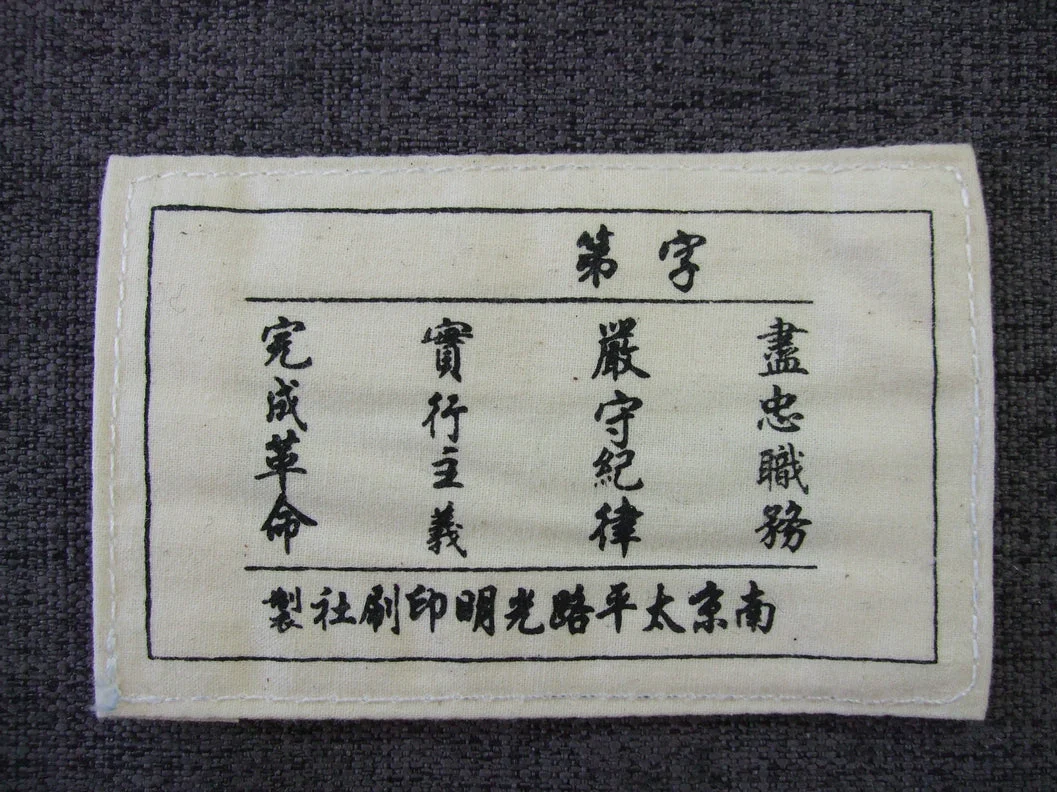 字 第
盡忠職務
嚴守紀律
實行主義
完成革命
南京太平路光明印刷社製